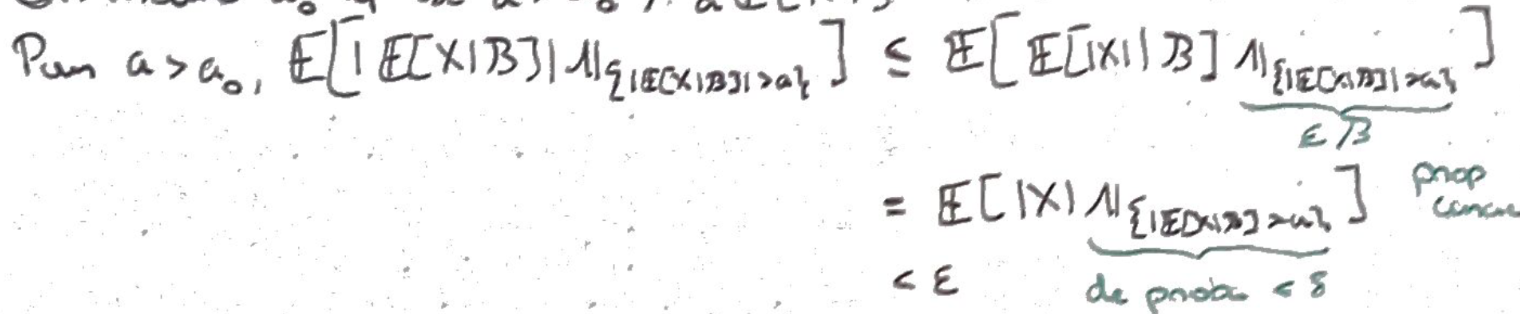 Pour a > a₀, 𝔼[|𝔼[X|B]| 𝟙_{|𝔼[X|B]|>a}] ≤ 𝔼[𝔼[|X||B] 𝟙_{|𝔼[X|B]|>a}]
∈ B
= 𝔼[|X| 𝟙_{|𝔼[X|B]|>a}] prop
< ε de proba < δ